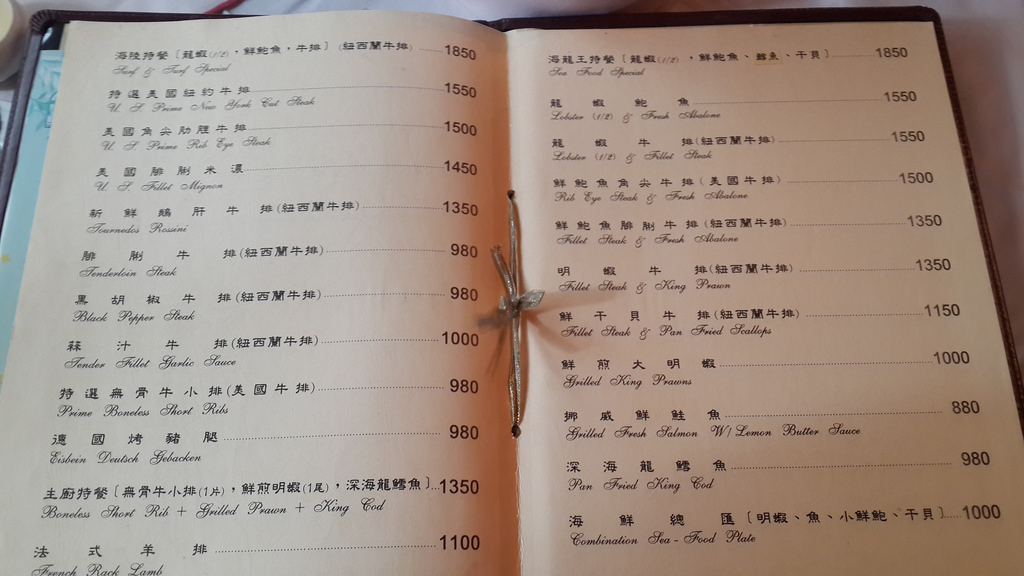 海陸特餐〔龍蝦(1/2)，鮮鮑魚，牛排〕(紐西蘭牛排) 1850
Surf & Turf Special
特選美國紐約牛排 1550
U. S. Prime New York Cut Steak
美國角尖肋脛牛排 1500
U. S. Prime Rib Eye Steak
美國腓脷米濃 1450
U. S. Fillet Mignon
新鮮鵝肝牛排(紐西蘭牛排) 1350
Tournedos Rossini
腓脷牛排(紐西蘭牛排) 980
Tenderloin Steak
黑胡椒牛排(紐西蘭牛排) 980
Black Pepper Steak
蒜汁牛排(紐西蘭牛排) 1000
Tender Fillet Garlic Sauce
特選無骨牛小排(美國牛排) 980
Prime Boneless Short Ribs
德國烤豬腿 980
Eisbein Deutsch Gebacken
主廚特餐〔無骨牛小排(1片)，鮮煎明蝦(1尾)，深海龍鱈魚〕 1350
Boneless Short Rib + Grilled Prawn + King Cod
法式羊排 1100
French Rack Lamb
海龍王特餐〔龍蝦(1/2)，鮮鮑魚、鱈魚、干貝〕 1850
Sea Food Special
龍蝦鮑魚 1550
Lobster (1/2) & Fresh Abalone
龍蝦牛排(紐西蘭牛排) 1550
Lobster (1/2) & Fillet Steak
鮮鮑魚角尖牛排(美國牛排) 1500
Rib Eye Steak & Fresh Abalone
鮮鮑魚腓脷牛排(紐西蘭牛排) 1350
Fillet Steak & Fresh Abalone
明蝦牛排(紐西蘭牛排) 1350
Fillet Steak & King Prawn
鮮干貝牛排(紐西蘭牛排) 1150
Fillet Steak & Pan Fried Scallops
鮮煎大明蝦 1000
Grilled King Prawns
挪威鮮鮭魚 880
Grilled Fresh Salmon W/Lemon Butter Sauce
深海龍鱈魚 980
Pan Fried King Cod
海鮮總匯〔明蝦、魚、小鮮鮑、干貝〕 1000
Combination Sea-Food Plate